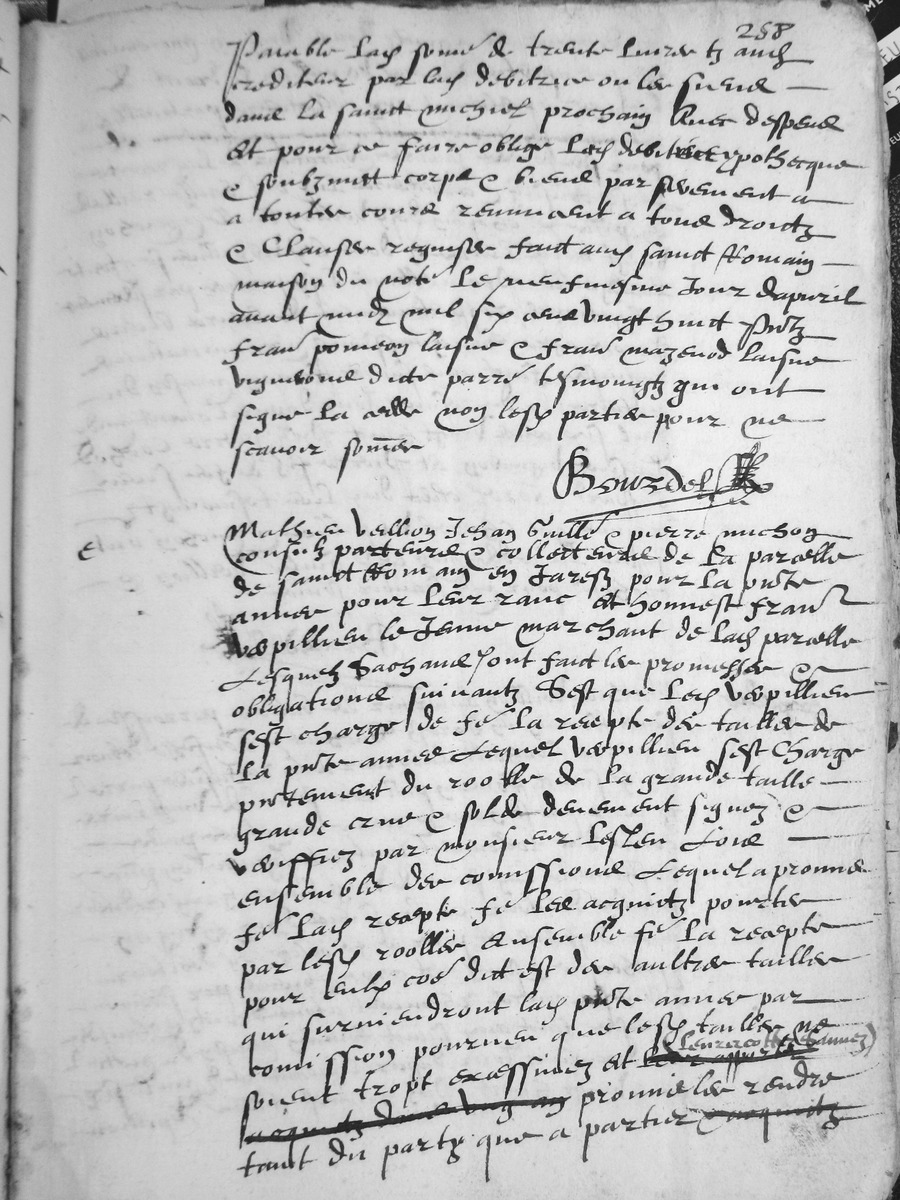 258
Paiable lad somé de trente livres tz aud
crediteur par lad debitrice ou les siens
dans la sainct michiel prochain Avec despens
Et pour ce faire oblige lad debitrice ypothecque
& soubzmet corps & biens par serement a
a toutes cours renuncent a tous droictz
& Clauses requises faict aud sainct Romain
maison du noté Le neufviesme Jour dapvril
avant midy mil six cens vingt huict Pntz
fran pomeon laisne & fran mazenod laisne
vignerons dicte parré tesmoingtz qui ont
signé La cedde non lesd parties pour ne
scavoir sommés
Bourdel
Mathieu Jehan Guillé & pierre michon
Consulz parteurs & collecteurs de La parcelle
de sainct Romain en Jarest pour La pnte
annee pour Leur ranc Et honnest fran
verpillieu le Jeune marchant de lad parcelle
Lesquelz Sachans ont faict les promesses &
obligations suivantz Sest que led verpillieu
sest charge de fé La recepte des tailles de
La pnte annee Lequel verpillieu sest Charge
pntement du roolle de La grande taille
grande crue & solde deuement signez &
veriffiez par monsieur Lesleu
ensemble des comissions Lequel a promis
fé Lad recepte fé Les acquictz pourtes
par lesd roolles Ensemble fé La recepte
pour eulx coé dict est des aultres tailles
qui surviendront lad pnte annee par
comission pourveu que lesd tailles ne
soient tropt excessives et
promis les rendre
tant du party que a partier